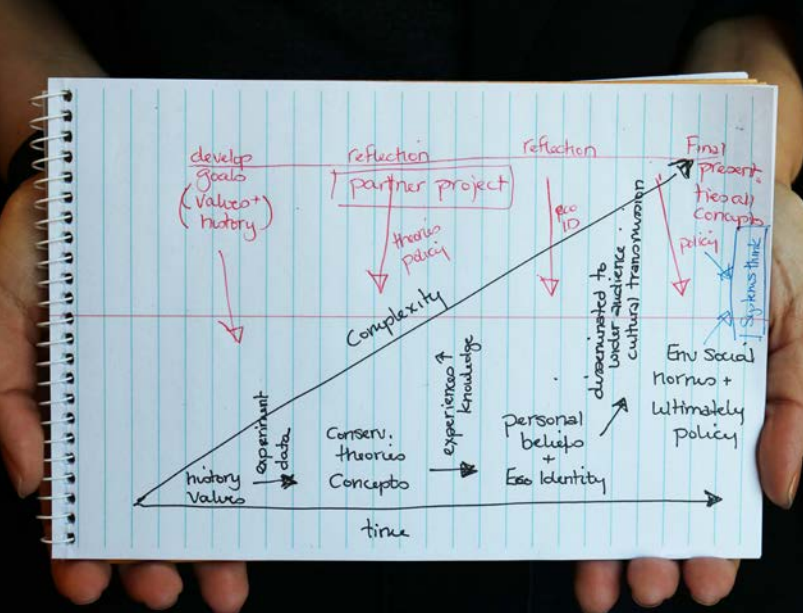 develop
goals
(values +
history)
reflection
partner project
theories
policy
reflection
eco
ID
Final
present.
ties all
concepts
policy
Systems think
Complexity
history
values
experiment
data
Conserv.
theories
Concepts
experiences ↑
knowledge
personal
beliefs
+
Eco Identity
disseminated to
wider audience :
cultural transmission
Env Social
norms +
ultimately
policy
time